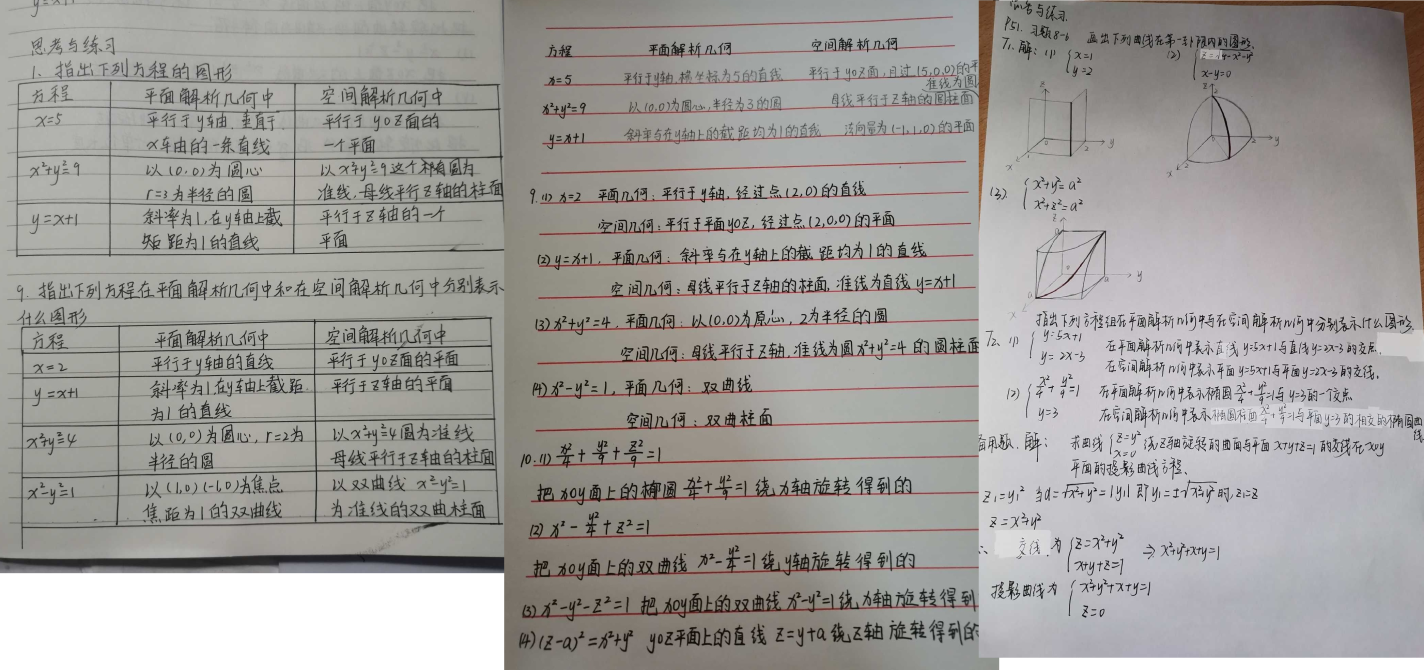 y=x+1
思考与练习
1. 指出下列方程的图形
方程 平面解析几何中 空间解析几何中
x=5 平行于y轴、垂直于 平行于yoz面的
x轴的一条直线 一个平面
x²+y²=9 以(0,0)为圆心 以x²+y²=9这个
r=3为半径的圆 准线,母线平行Z轴的柱面
y=x+1 斜率为1,在y轴上截 平行于Z轴的一个
距为1的直线 平面
9. 指出下列方程在平面解析几何中和在空间解析几何中分别表示
什么图形
方程 平面解析几何中 空间解析几何中
x=2 平行于y轴的直线 平行于yoz面的平面
y=x+1 斜率为1,在y轴上截距 平行于Z轴的平面
为1的直线
x²+y²=4 以(0,0)为圆心,r=2为 以x²+y²=4圆为准线
半径的圆 母线平行于Z轴的柱面
x²-y²=1 以(1,0)(-1,0)为焦点 以双曲线 x²-y²=1
焦距为1的双曲线 为准线的双曲柱面
方程 平面解析几何 空间解析几何
x=5 平行于y轴,横坐标为5的直线 平行于yoz面,且过(5,0,0)的平
准线为圆
x²+y²=9 以(0,0)为圆心,半径为3的圆 母线平行于Z轴的圆柱面
y=x+1 斜率与在y轴上的截距均为1的直线 法向量为(-1,1,0)的平面
9.(1) x=2 平面几何:平行于y轴,经过点(2,0)的直线
空间几何:平行于平面yoz,经过点(2,0,0)的平面
(2) y=x+1,平面几何:斜率与在y轴上的截距均为1的直线
空间几何:母线平行于Z轴的柱面,准线为直线y=x+1
(3) x²+y²=4,平面几何:以(0,0)为原心,2为半径的圆
空间几何:母线平行于Z轴,准线为圆x²+y²=4的圆柱面
(4) x²-y²=1,平面几何:双曲线
空间几何:双曲柱面
10.(1) x²/4+y²/9+z²/9=1
把xoy面上的椭圆x²/4+y²/9=1绕x轴旋转得到的
(2) x²-y²/4+z²=1
把xoy面上的双曲线 x²-y²/4=1绕y轴旋转得到的
(3) x²-y²-z²=1 把xoy面上的双曲线x²-y²=1绕x轴旋转得到
(4) (z-a)²=x²+y² yoz平面上的直线 z=y+a 绕z轴旋转得到的
思考与练习
P51. 习题8-6 画出下列曲线在第一卦限内的图形.
7.解: (1) {x=1 (2)
y=2 x-y=0
z
1 0 2 y
x
z 2
2 2 y
x
(3). {x²+y²=a²
x²+z²=a²
z
a
0 a y
x
指出下列方程组在平面解析几何中与在空间解析几何中分别表示什么图形.
(1) {y=5x+1 在平面解析几何中表示直线y=5x+1与直线y=2x-3的交点.
y=2x-3 在空间解析几何中表示平面y=5x+1与平面y=2x-3的交线.
(2) {x²/4+y²/9=1 在平面解析几何中表示椭圆x²/4+y²/9=1与y=3的一个交点
y=3 在空间解析几何中表示椭圆柱面x²/4+y²/9=1与平面y=3的相交的
解: 求曲线{z=y² 绕z轴旋转的曲面与平面x+y+z=1的交线在xoy
x=0
平面的投影曲线方程.
z₁=y₁² 当d=√(x²+y²)=|y₁| 即y₁=±√(x²+y²)时,z₁=z
z=x²+y²
∴ 交线为 {z=x²+y² ⇒ x²+y²+x+y=1
x+y+z=1
投影曲线为 {x²+y²+x+y=1
z=0